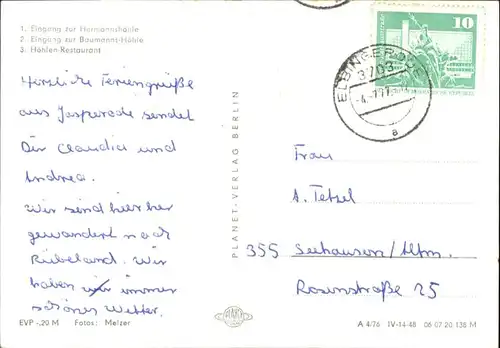 1. Eingang zur Hermannshöhle
2. Eingang zur Baumanns-Höhle
3. Höhlen-Restaurant
Herzliche Feriengrüße
aus Jasperode sendet
Dir Claudia und
Andrea.
Wir sind hierher
gewandert nach
Rübeland. Wir
haben immer
schönes Wetter.
EVP -.20 M Fotos: Melzer
PLANET-VERLAG BERLIN
10
ELBINGERODE
3703
a
Frau
A. Tetzel
355 Seehausen/Altm.
Rosenstraße 25
A 4/76 IV-14-48 06 07 20 138 M